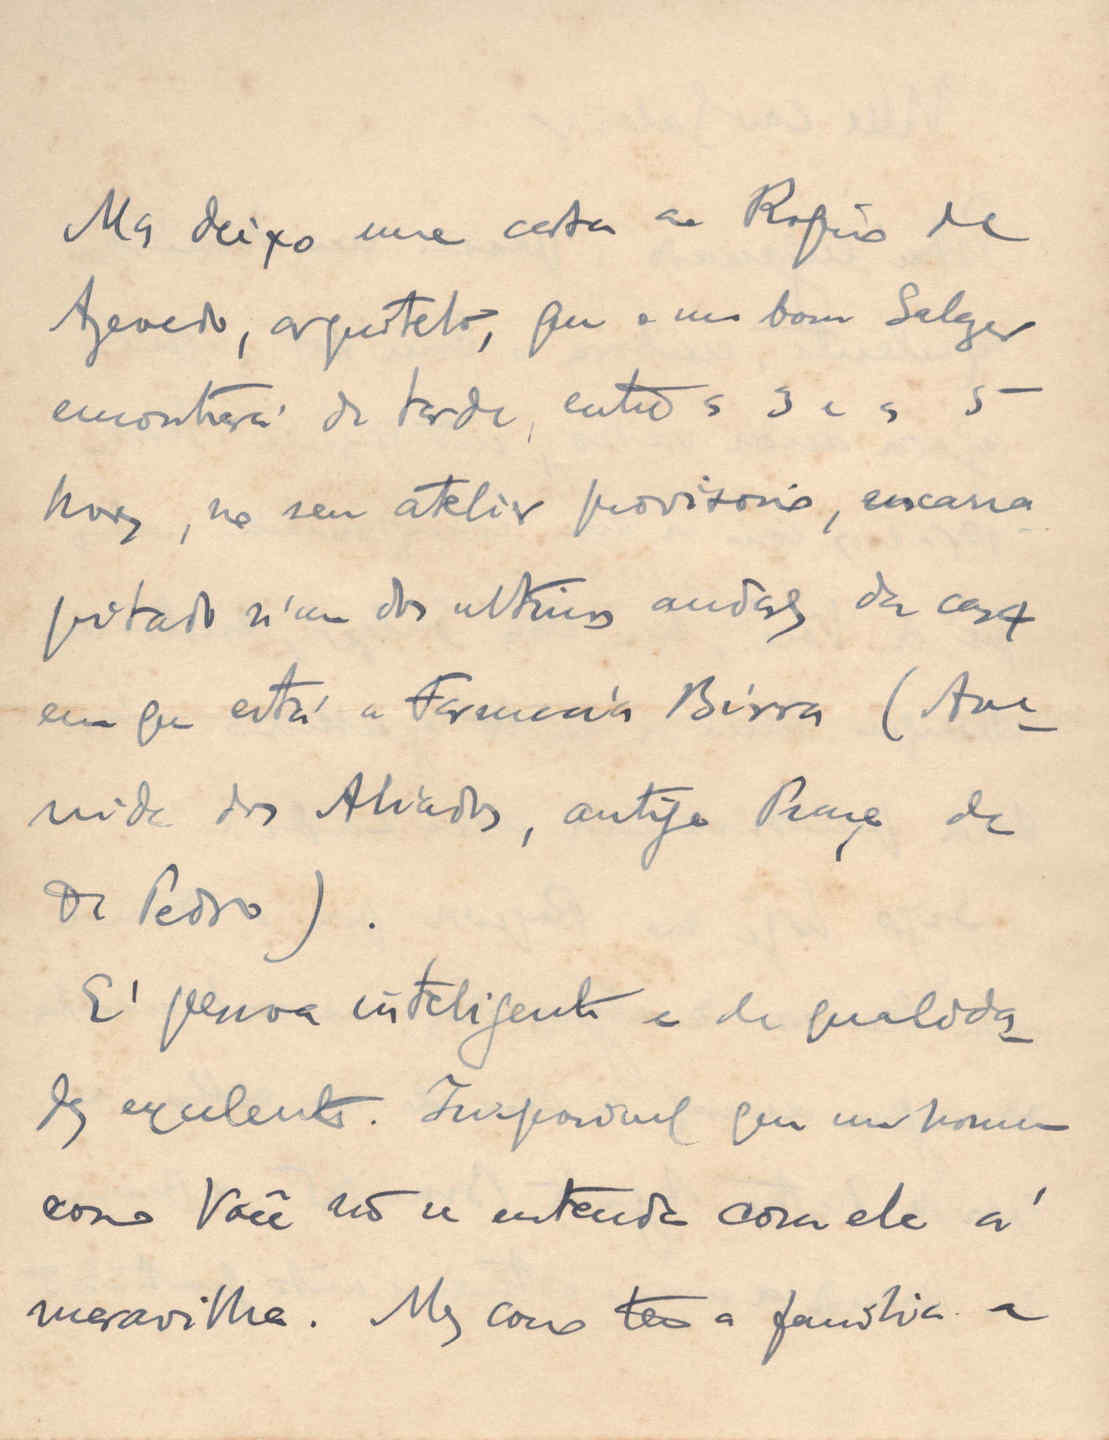 Mas deixo uma carta ao Rogério de
Azevedo, arquiteto, que o meu bom Salazar
encontrará de tarde, entre as 3 e as 5
horas, no seu atelier provisorio, encarra
pitado n'um dos ultimos andares da casa
em que está a Farmacia Birra (Ave-
nida dos Aliados, antiga Praça de
D. Pedro).
E' pessoa inteligente e de qualida-
des excelentes. Impossivel que um homem
como Você não se entenda com ele á
maravilha. Mas como tem a familia a